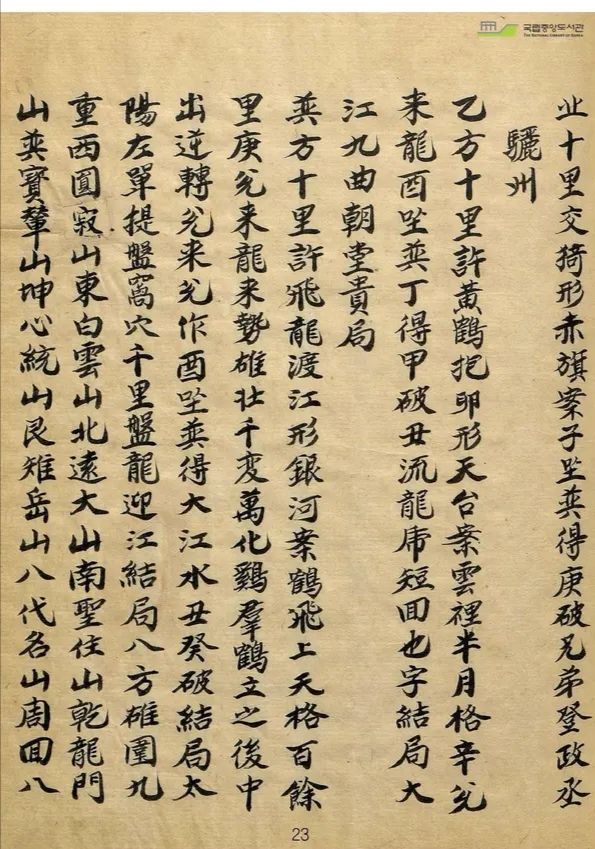 국립중앙도서관
THE NATIONAL LIBRARY OF KOREA
北十里交猗形赤旗案子坐巽得庚破兄弟登政丞
驪州
乙方十里許黃鶴抱卵形天台案雲裡半月格辛兊
来龍酉坐巽丁得甲破丑流龍席短回也字結局大
江九曲朝堂貴局
巽方十里許飛龍渡江形銀河案鶴飛上天格百餘
里庚兊来龍来勢雄壮千変萬化鷄羣鶴立之後中
出逆轉兊来兊作酉坐巽得大江水丑癸破結局太
陽左單提盤窩穴千里盤龍迎江結局八方雄圍九
重西圓寂山東白雲山北遠大山南聖住山乾龍門
山巽寳輦山坤心統山艮雉岳山八代名山周回八
23